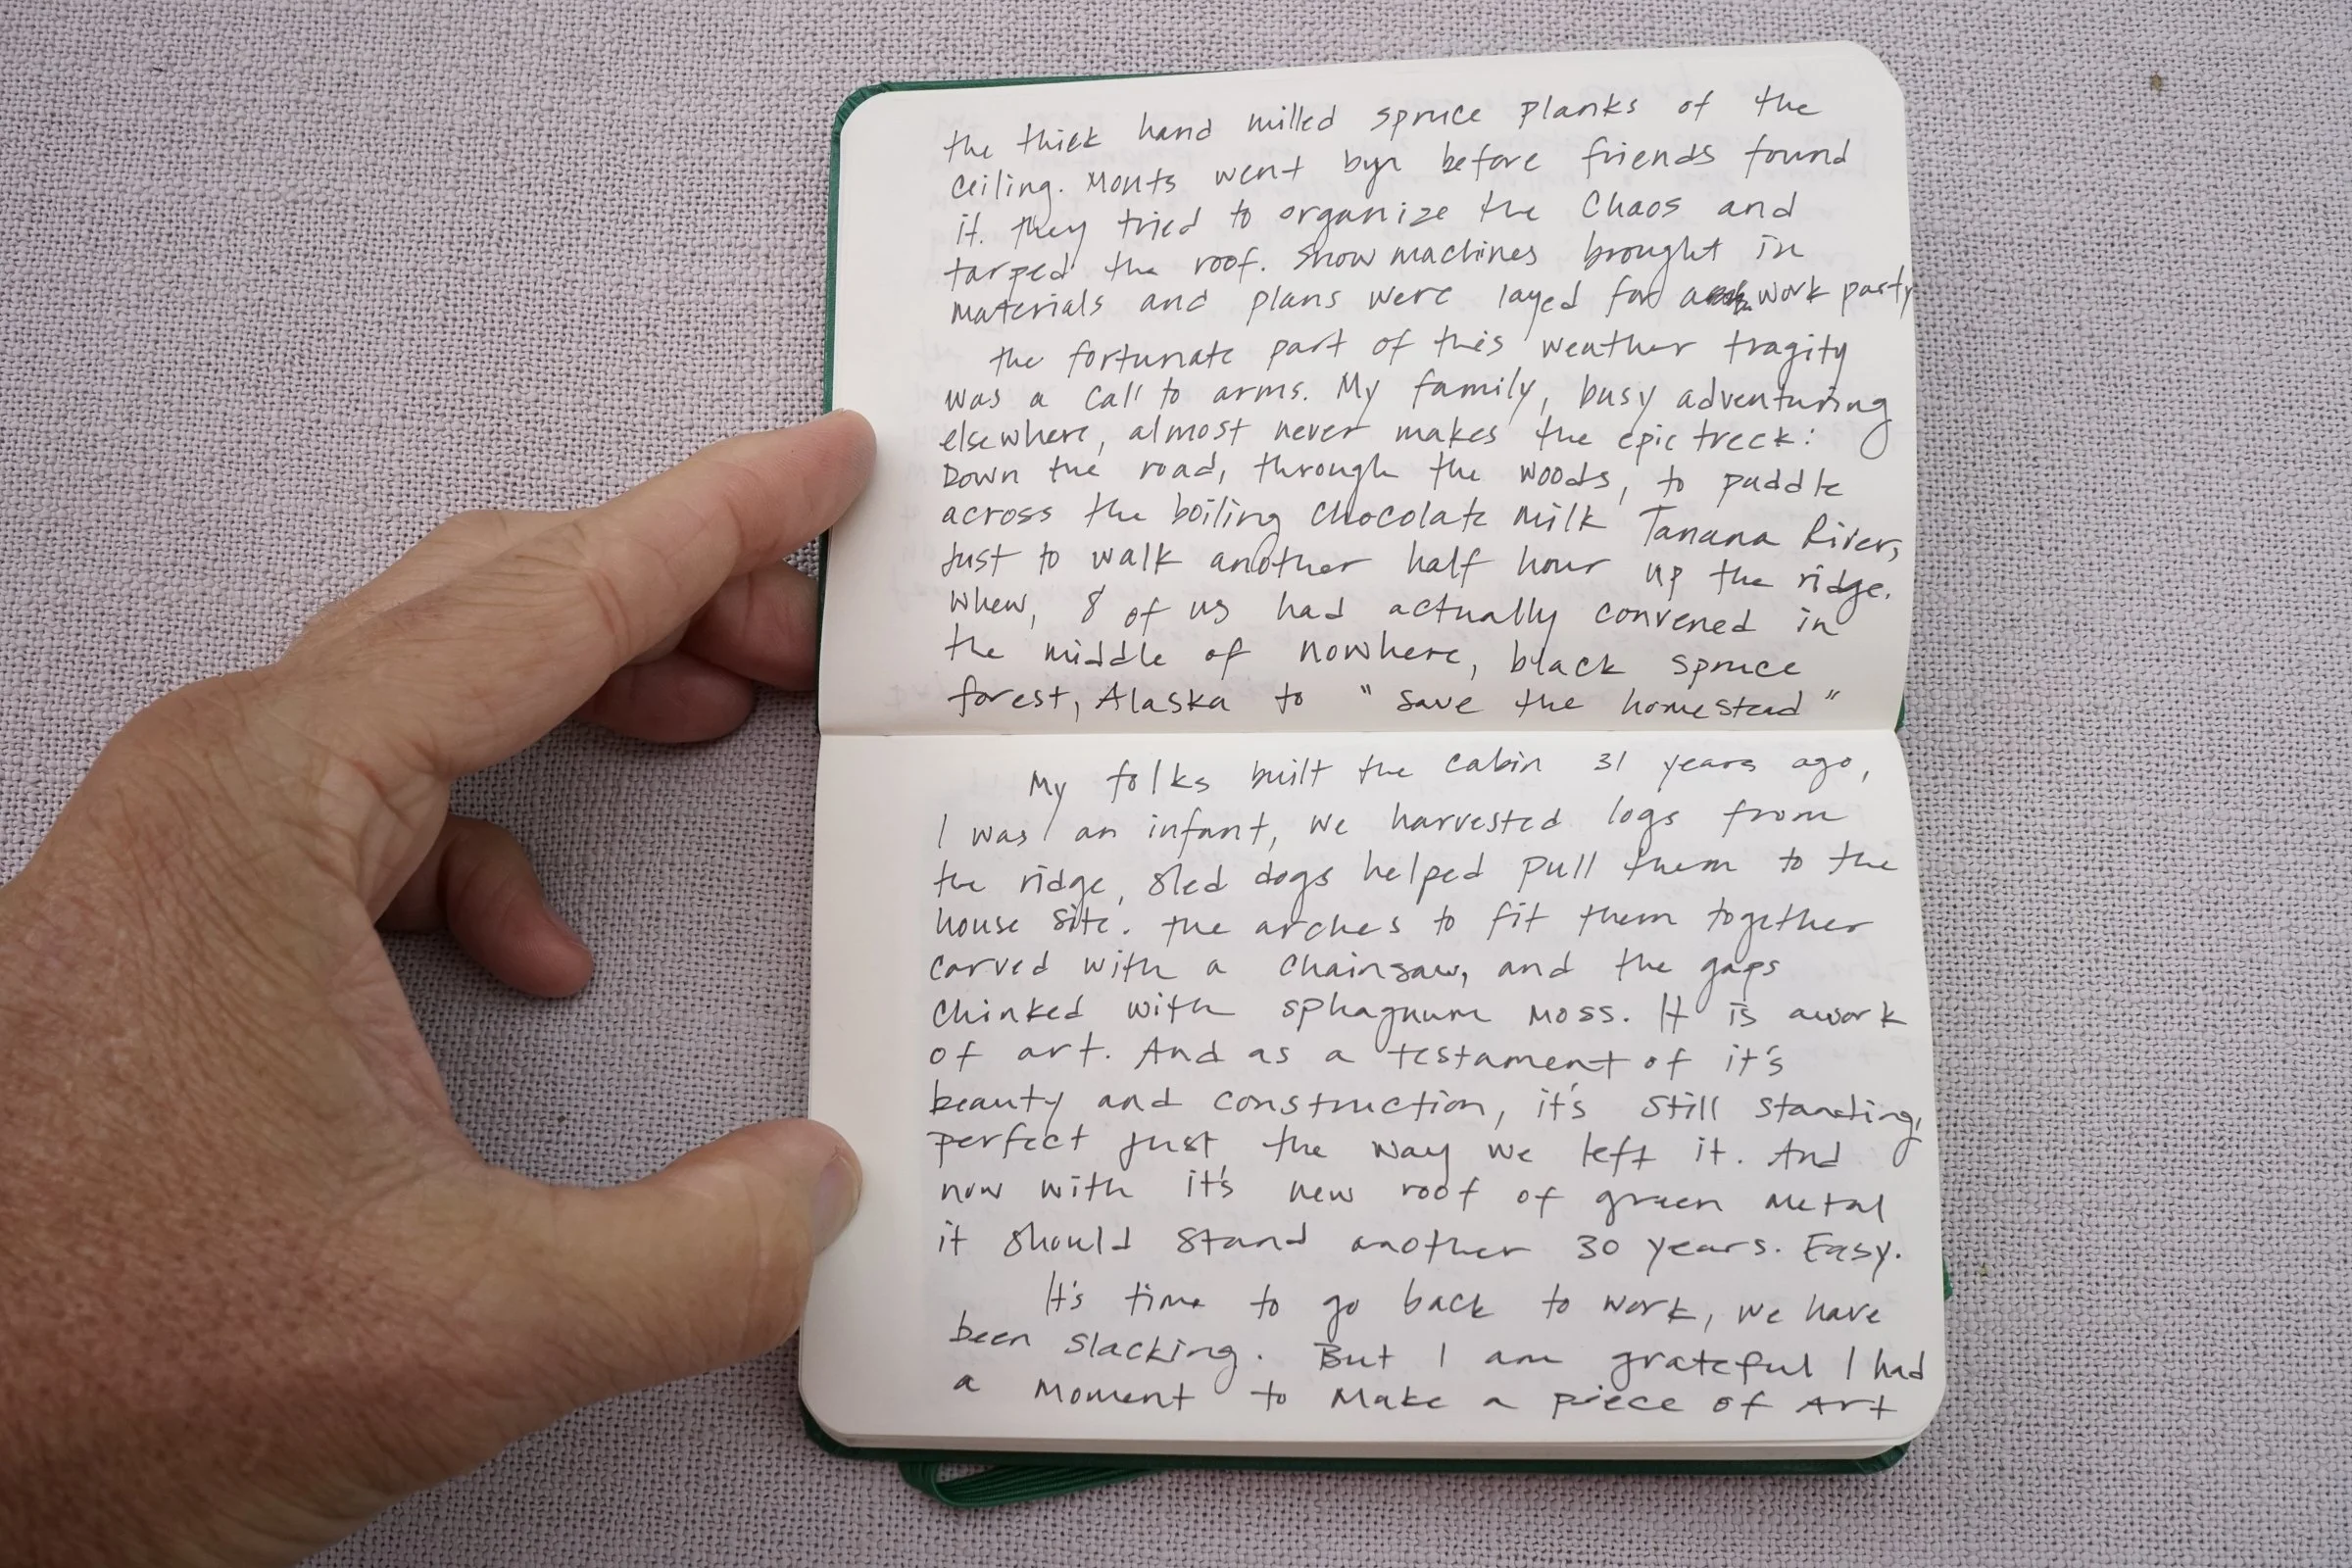 the thick hand milled spruce planks of the
ceiling. Monts went byn before friends found
it. they tried to organize the chaos and
tarped the roof. Snow machines brought in
materials and plans were layed for a work party
the fortunate part of this weather tragity
was a call to arms. My family, busy adventuring
elsewhere, almost never makes the epic treck:
Down the road, through the woods, to paddle
across the boiling chocolate milk Tanana River,
Just to walk another half hour up the ridge.
Whew, 8 of us had actually convened in
the middle of nowhere, black spruce
forest, Alaska to "save the homestead"
My folks built the cabin 31 years ago,
I was an infant, we harvested logs from
the ridge, sled dogs helped pull them to the
house site. the arches to fit them together
carved with a chainsaw, and the gaps
chinked with sphagnum moss. It is a work
of art. And as a testament of it's
beauty and construction, it's still standing,
perfect just the way we left it. And
now with it's new roof of green metal
it should stand another 30 years. Easy.
It's time to go back to work, we have
been slacking. But I am grateful I had
a moment to make a piece of Art